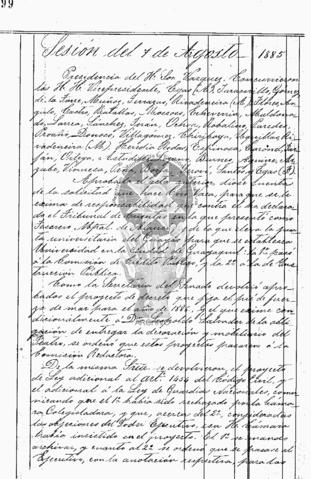 99
Sesión del 7 de Agosto 1885
Presidencia del H. Sor. Vázquez. Concurrieron
los H. H. Vicepresidente, Egas (A.), Jaramillo, Gómez
de la Torre, Muñoz, Terrazas, Rivadeneira (M.), Flores, An-
Pacho, Batallas, Moscoso, Echeverría, Maldona-
do, Darco, Sánchez, Terán, Peña, Robalino, Paredes,
Proaño, Donoso, Villagómez, Chiriboga, Angulo, Ri-
vadeneira (A.), Heredia, Rodas, Espinosa, Cárdenas, Far-
fán, Ortega, Bueno, Aguirre, Ar-
zube, Vinueza, Santos y Egas (F.)
Aprobada el acta diose cuenta
de la solicitud que hace para que se le
exima de responsabilidad contra él ha declara-
do el Tribunal de Cuentas en la que presentó como
Tesorero Mpal. de y de lo que eleva la jun-
ta universitaria del Guayas para que se establezca
Universidad en la ciudad de Guayaquil. La 1ª pasó
a la Comisión de Crédito Público, y la 2ª a la de Ins-
trucción Pública.
Como la Secretaría del Senado devolvió apro-
bados el proyecto de decreto que fija el pié de fuer-
za de mar para el año de 1886, y el que exime con
dicionalmente a Don Leopoldo Salvador de la obli-
gación de entregar la decoración y mobiliario del
Teatro, se ordenó que estos proyectos pasaren a la
Comisión Redactora.
De la misma Sria se devolvieron, el proyecto
de Ley adicional al Art. 1454 del Código Civil, y
el adicional a la Ley de Guardias Nacionales, comu-
nicando que el 1º había sido rechazado por la Cáma-
ra Colegisladora, y que, acerca del 2º, consideradas
las objeciones del Poder Ejecutivo, esa H. Cámara
había insistido en el proyecto. El 1º se mandó
archivar, y cuanto al 2º se ordenó que se pasare al
Ejecutivo, con la anotación respectiva, para los